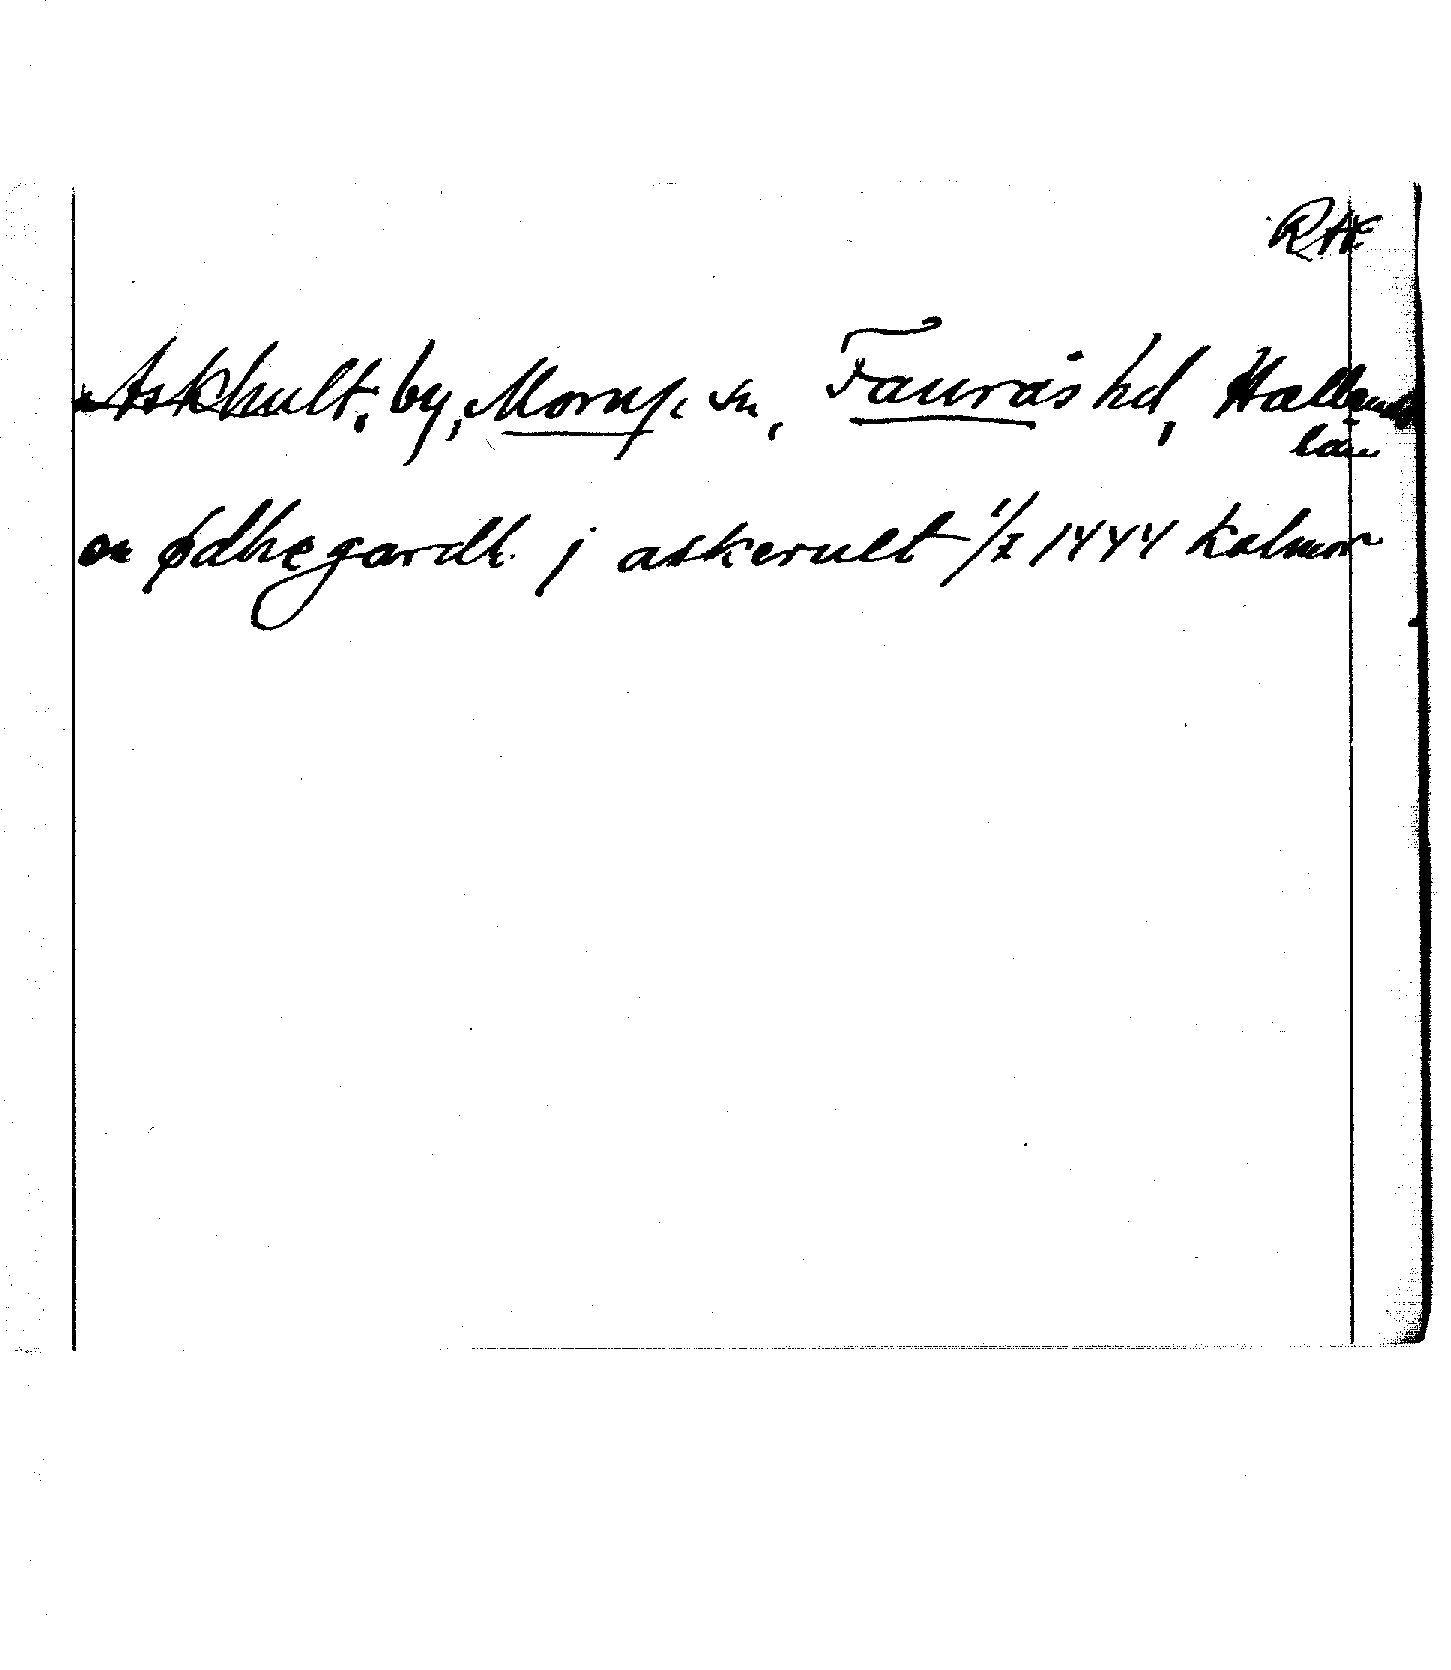 RAE
Askhult, by, Morups sn, Faurås hd, Hallands
län
en ødhegardh j askerult 1/X 1444 Kalmar